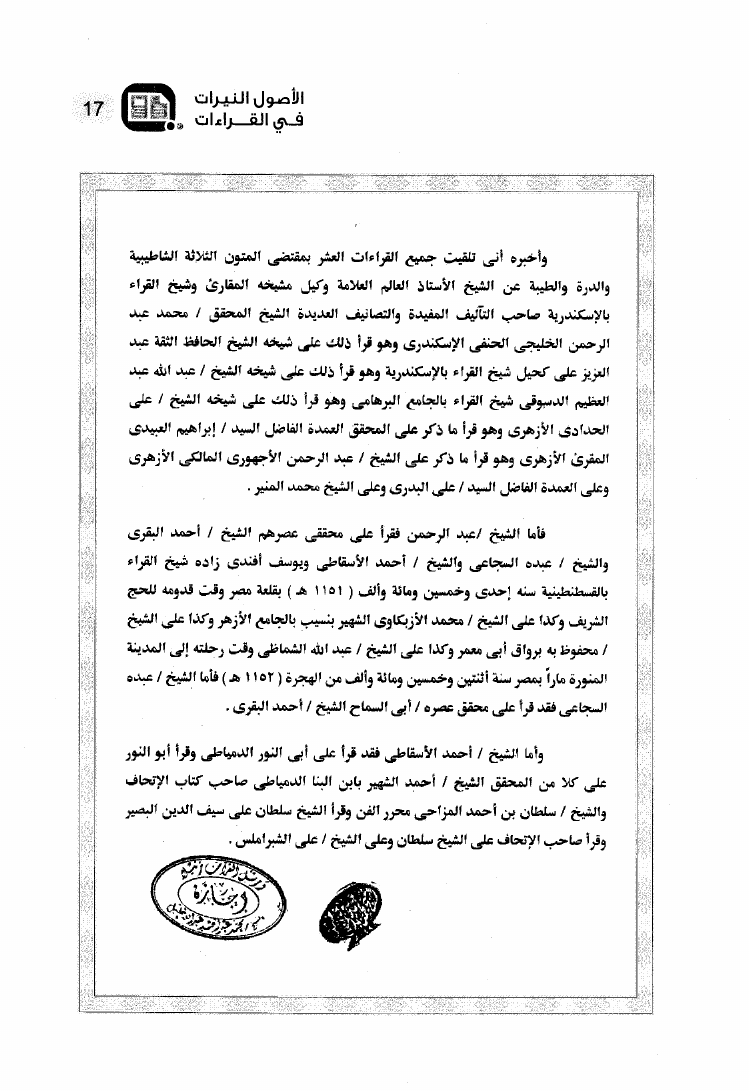 17
الأصول النيرات
في القراءات
وأخبره أنى تلقيت جميع القراءات العشر بمقتضى المتون الثلاثة الشاطبية
والدرة والطيبة عن الشيخ الأستاذ العالم العلامة وكيل مشيخه المقارئ وشيخ القراء
بالإسكندرية صاحب التآليف المفيدة والتصانيف العديدة الشيخ المحقق / محمد عبد
الرحمن الخليجى الحنفى الإسكندرى وهو قرأ ذلك على شيخه الشيخ الحافظ الثقة عبد
العزيز على كحيل شيخ القراء بالإسكندرية وهو قرأ ذلك على شيخه الشيخ / عبد الله عبد
العظيم الدسوقى شيخ القراء بالجامع البرهامى وهو قرأ ذلك على شيخه الشيخ / على
الحدادى الأزهرى وهو قرأ ما ذكر على المحقق العمدة الفاضل السيد / إبراهيم العبيدى
المقرئ الأزهرى وهو قرأ ما ذكر على الشيخ / عبد الرحمن الأجهورى المالكى الأزهرى
وعلى العمدة الفاضل السيد / على البدرى وعلى الشيخ محمد المنير .
فأما الشيخ /عبد الرحمن فقرأ على محققى عصرهم الشيخ / أحمد البقرى
والشيخ / عبده السجاعى والشيخ / أحمد الأسقاطى ويوسف أفندى زاده شيخ القراء
بالقسطنطينية سنه إحدى وخمسين ومائة وألف ( ١١٥١ هـ ) بقلعة مصر وقت قدومه للحج
الشريف وكذا على الشيخ / محمد الأزبكاوى الشهير بنسيب بالجامع الأزهر وكذا على الشيخ
/ محفوظ به برواق أبى معمر وكذا على الشيخ / عبد الله الشماظى وقت رحلته إلى المدينة
المنورة ماراً بمصر سنة أثنتين وخمسين ومائة وألف من الهجرة ( ١١٥٢ هـ ) فأما الشيخ / عبده
السجاعى فقد قرأ على محقق عصره / أبى السماح الشيخ / أحمد البقرى .
وأما الشيخ / أحمد الأسقاطى فقد قرأ على أبى النور الدمياطى وقرأ أبو النور
على كلا من المحقق الشيخ / أحمد الشهير بابن البنا الدمياطى صاحب كتاب الإتحاف
والشيخ / سلطان بن أحمد المزاحى محرر الفن وقرأ الشيخ سلطان على سيف الدين البصير
وقرأ صاحب الإتحاف على الشيخ سلطان وعلى الشيخ / على الشبراملس .
إجازة